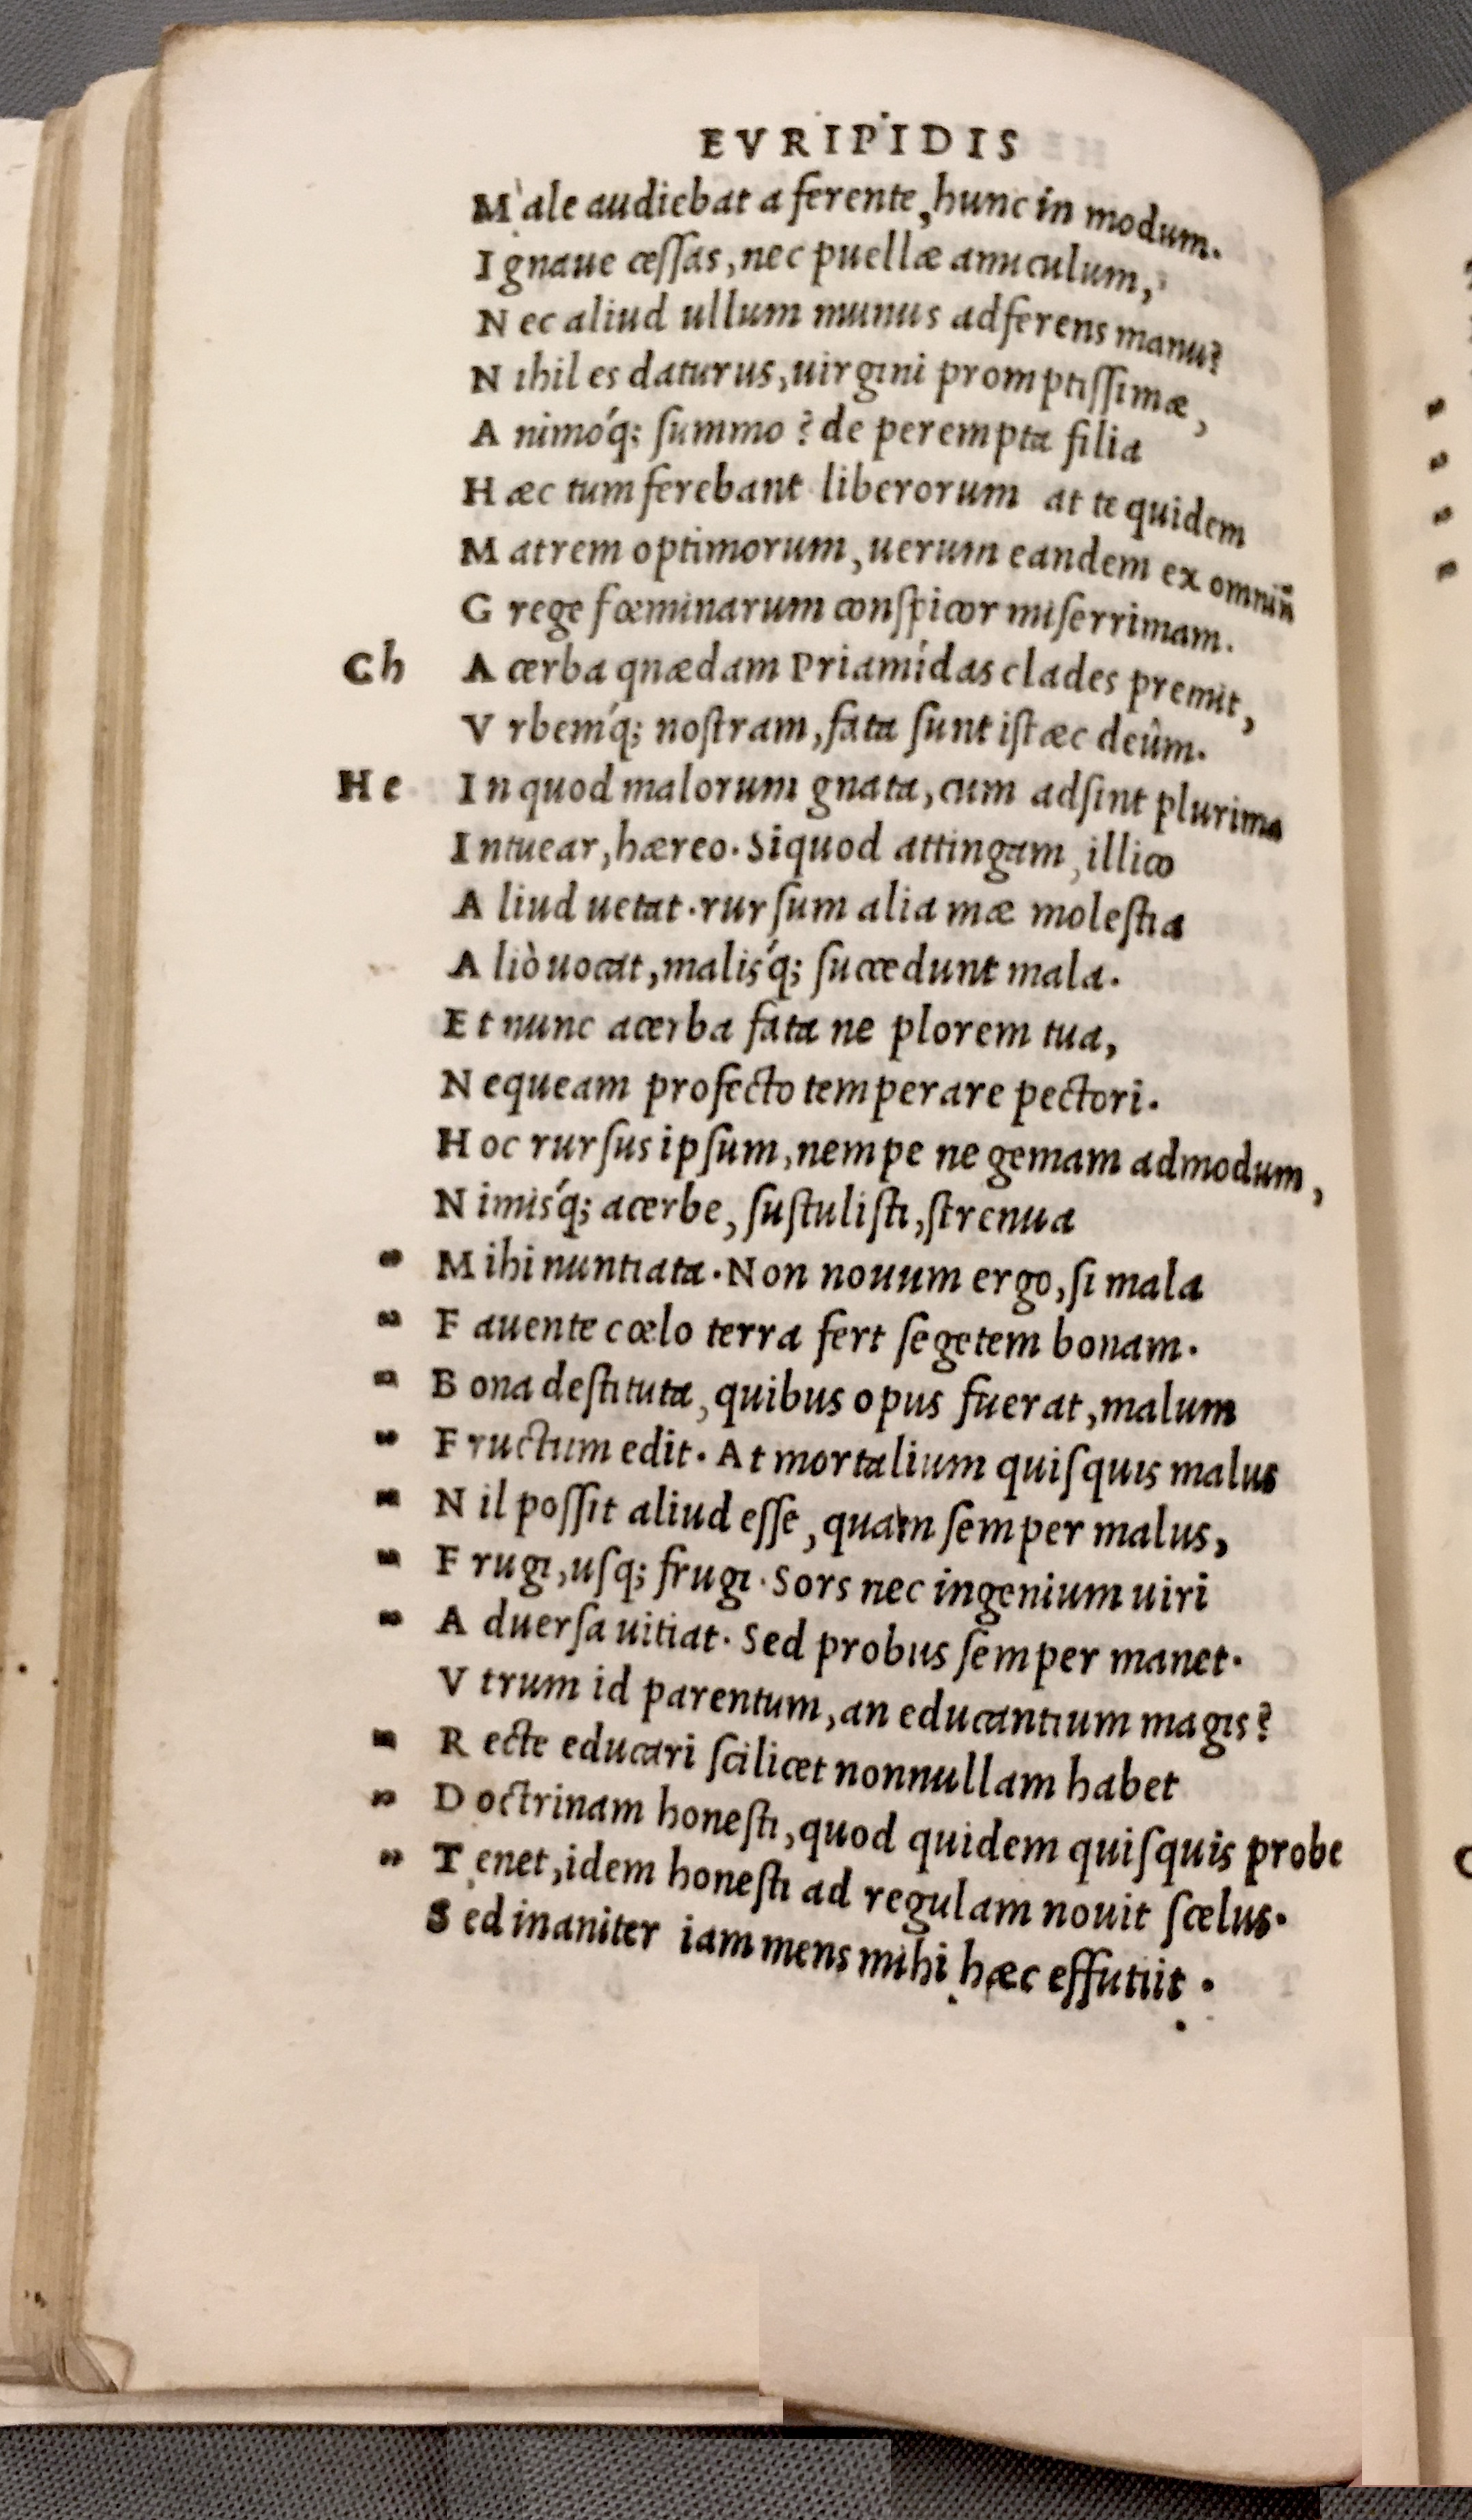 EVRIPIDIS
M ale audiebat a ferente, hunc in modum.
I gnaue cessas, nec puellæ amiculum,
N ec aliud ullum munus adferens manu?
N ihil es daturus, uirgini promptissimæ,
A nimóq; summo? de perempta filia
H æc tum ferebant liberorum at te quidem
M atrem optimorum, uerum eandem ex omniū
G rege fœminarum conspicor miserrimam.
Ch A cerba quædam Priamídas clades premit,
V rbemq́; nostram, fata sunt istæc deûm.
He I n quod malorum gnata, cum adsint plurima
I ntuear, hæreo. Siquod attingam, illico
A liud uetat. rursum alia mæ molestia
A liò uocat, malisq́; succedunt mala.
E t nunc acerba fata ne plorem tua,
N equeam profecto temperare pectori.
H oc rursus ipsum, nempe ne gemam admodum,
N imisq́; acerbe, sustulisti, strenua
" M ihi nuntiata. Non nouum ergo, si mala
" F auente cœlo terra fert segetem bonam.
" B ona destituta, quibus opus fuerat, malum
" F ructum edit. At mortalium quisquis malus
" N il possit aliud esse, quam semper malus,
" F rugi, usq; frugi. Sors nec ingenium uiri
" A duersa uitiat. Sed probus semper manet.
V trum id parentum, an educantium magis?
" R ecte educari scilicet nonnullam habet
" D octrinam honesti, quod quidem quisquis probe
" T enet, idem honesti ad regulam nouit scelus.
S ed inaniter iam mens mihi hæc effutiit.